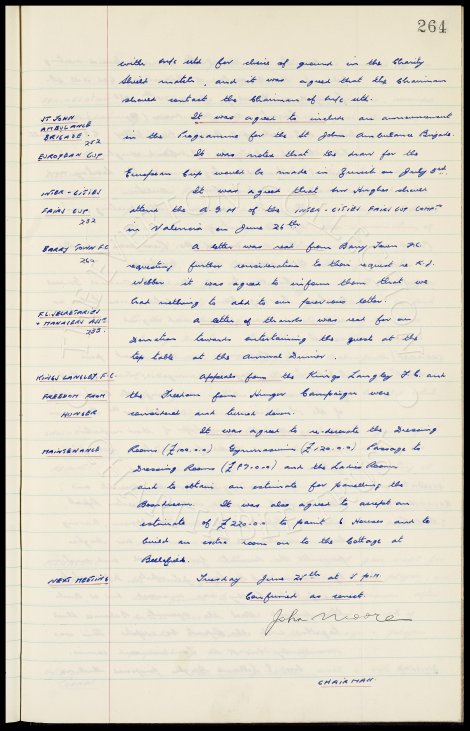 264
with M/c utd for choice of ground in the Charity
Shield match, and it was agreed that the Chairman
should contact the Chairman of M/c utd.
ST JOHN AMBULANCE BRIGADE. 252
It was agreed to include an announcement
in the Programme for the St Johns Ambulance Brigade.
EUROPEAN CUP
It was noted that the draw for the
European Cup would be made in Zurich on July 3rd.
INTER-CITIES FAIRS CUP 252
It was agreed that Mr Hughes should
attend the A.G.M of the INTER-CITIES FAIRS CUP COMP
in Valencia on June 26th
BARRY TOWN F.C. 262
A letter was read from Barry Town F.C
requesting further consideration to their request re K.J.
Webber it was agreed to inform them that we
had nothing to add to our previous letter.
F.L. SECRETARIES + MANAGERS ASS. 255
A letter of thanks was read for our
Donation towards entertaining the guests at the
top table at the Annual Dinner.
KINGS LANGLEY F.C.
FREEDOM FROM HUNGER
Appeals from the Kings Langley F.C. and
the Freedom from Hunger Campaign were
considered and turned down.
MAINTENANCE
It was agreed to re-decorate the, Dressing
Rooms (£100.0.0) Gymnasium (£120.0.0) Passage to
Dressing Rooms (£87.0.0) and the Ladies Room
and to obtain an estimate for panelling the
Boardroom. It was also agreed to accept an
estimate of £220.0.0 to paint 6 Houses and to
build an extra room on to the Cottage at
Bellefield.
NEXT MEETING
Tuesday June 25th at 5 p.m.
Confirmed as correct.
John Moores
CHAIRMAN